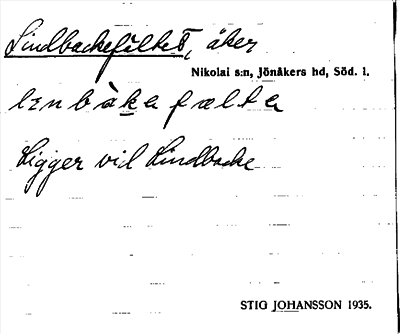 Lindbackefältet, åker
Nikolai s:n, Jönåkers hd, Söd. l.
lɪnbàkafælta
Ligger vid Lindbacke
STIG JOHANSSON 1935.